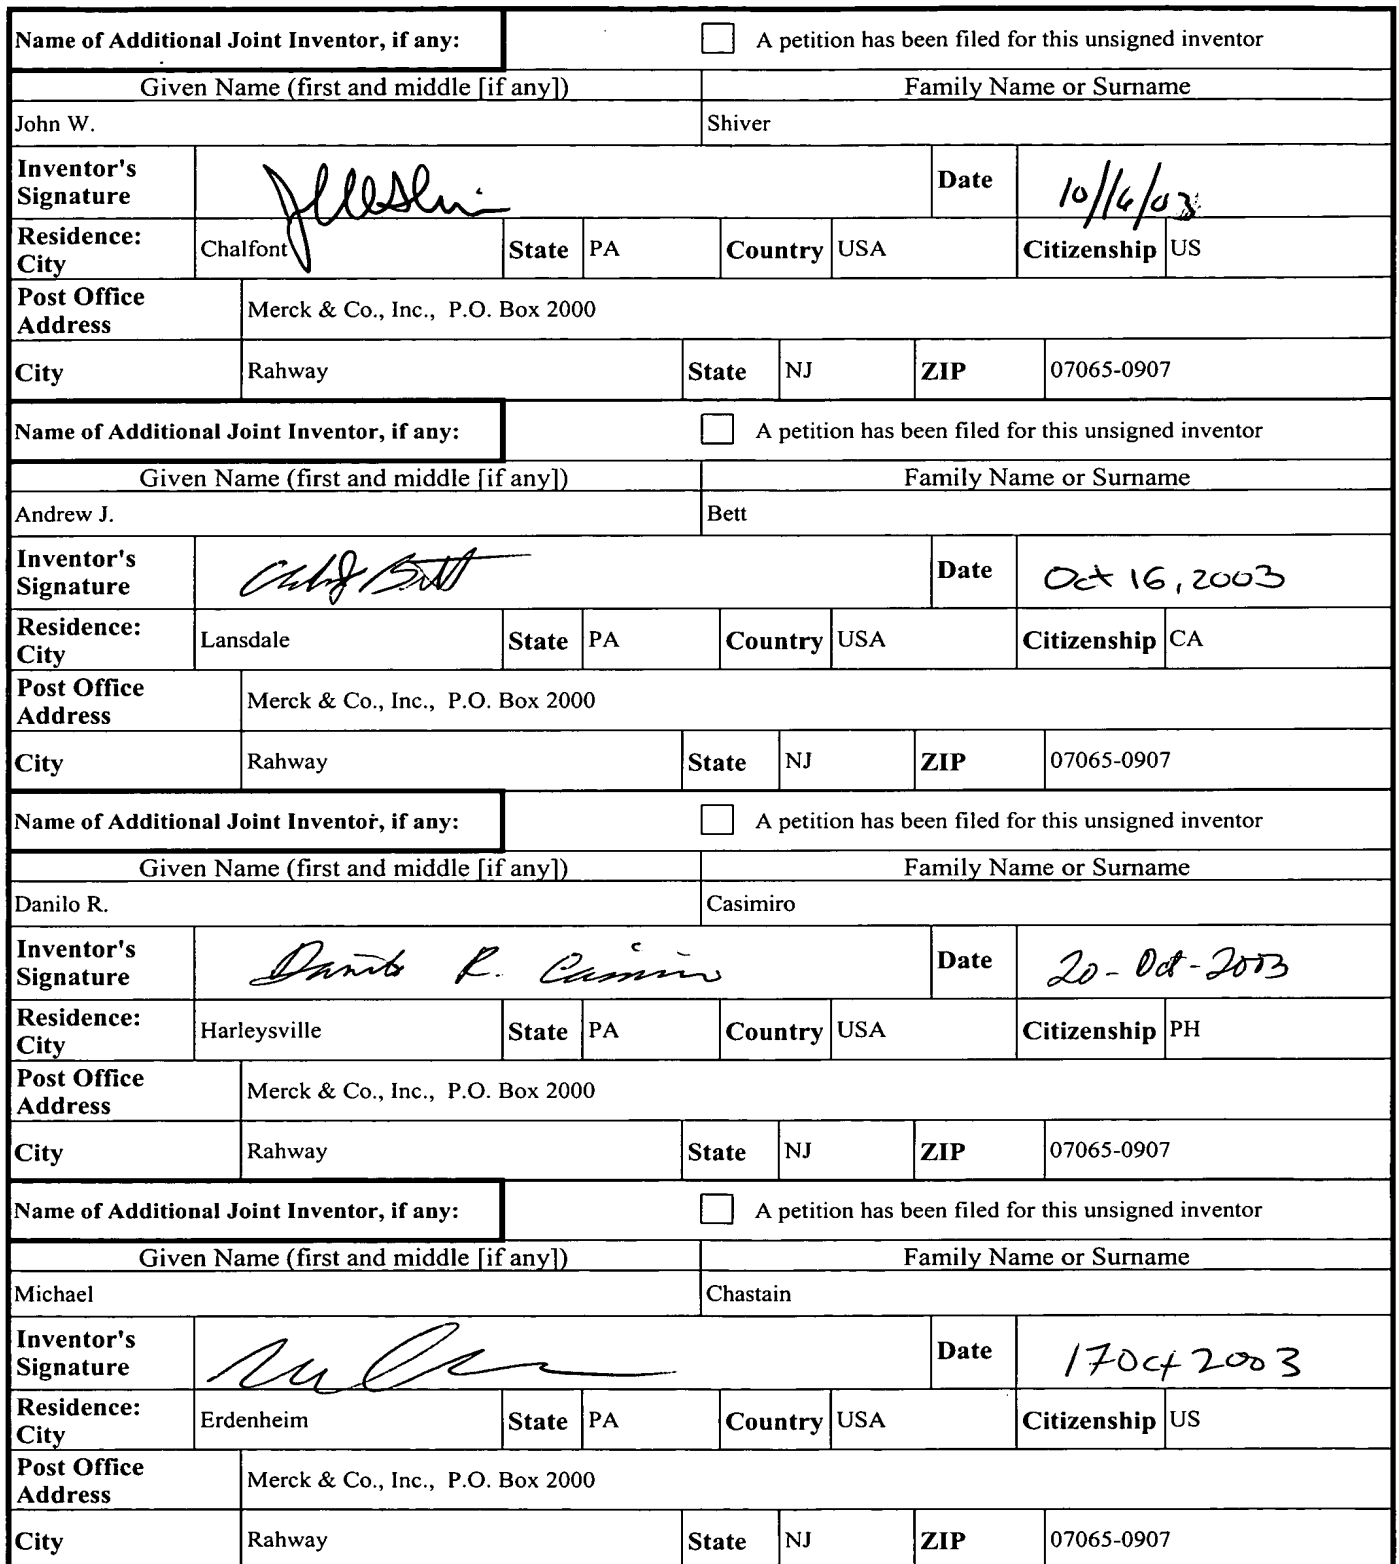 Name of Additional Joint Inventor, if any: A petition has been filed for this unsigned inventor
Given Name (first and middle [if any]) Family Name or Surname
John W. Shiver
Inventor's Signature Date 10/16/03
Residence: City Chalfont State PA Country USA Citizenship US
Post Office Address Merck & Co., Inc., P.O. Box 2000
City Rahway State NJ ZIP 07065-0907
Name of Additional Joint Inventor, if any: A petition has been filed for this unsigned inventor
Given Name (first and middle [if any]) Family Name or Surname
Andrew J. Bett
Inventor's Signature Date Oct 16, 2003
Residence: City Lansdale State PA Country USA Citizenship CA
Post Office Address Merck & Co., Inc., P.O. Box 2000
City Rahway State NJ ZIP 07065-0907
Name of Additional Joint Inventor, if any: A petition has been filed for this unsigned inventor
Given Name (first and middle [if any]) Family Name or Surname
Danilo R. Casimiro
Inventor's Signature Danilo R. Casimiro Date 20-Oct-2003
Residence: City Harleysville State PA Country USA Citizenship PH
Post Office Address Merck & Co., Inc., P.O. Box 2000
City Rahway State NJ ZIP 07065-0907
Name of Additional Joint Inventor, if any: A petition has been filed for this unsigned inventor
Given Name (first and middle [if any]) Family Name or Surname
Michael Chastain
Inventor's Signature Date 17 Oct 2003
Residence: City Erdenheim State PA Country USA Citizenship US
Post Office Address Merck & Co., Inc., P.O. Box 2000
City Rahway State NJ ZIP 07065-0907